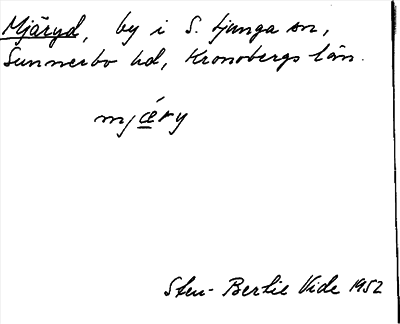 Mjäryd, by i S. Ljunga sn,
Sunnerbo hd, Kronobergs län.
mjǽry
Sten-Bertil Vide 1952